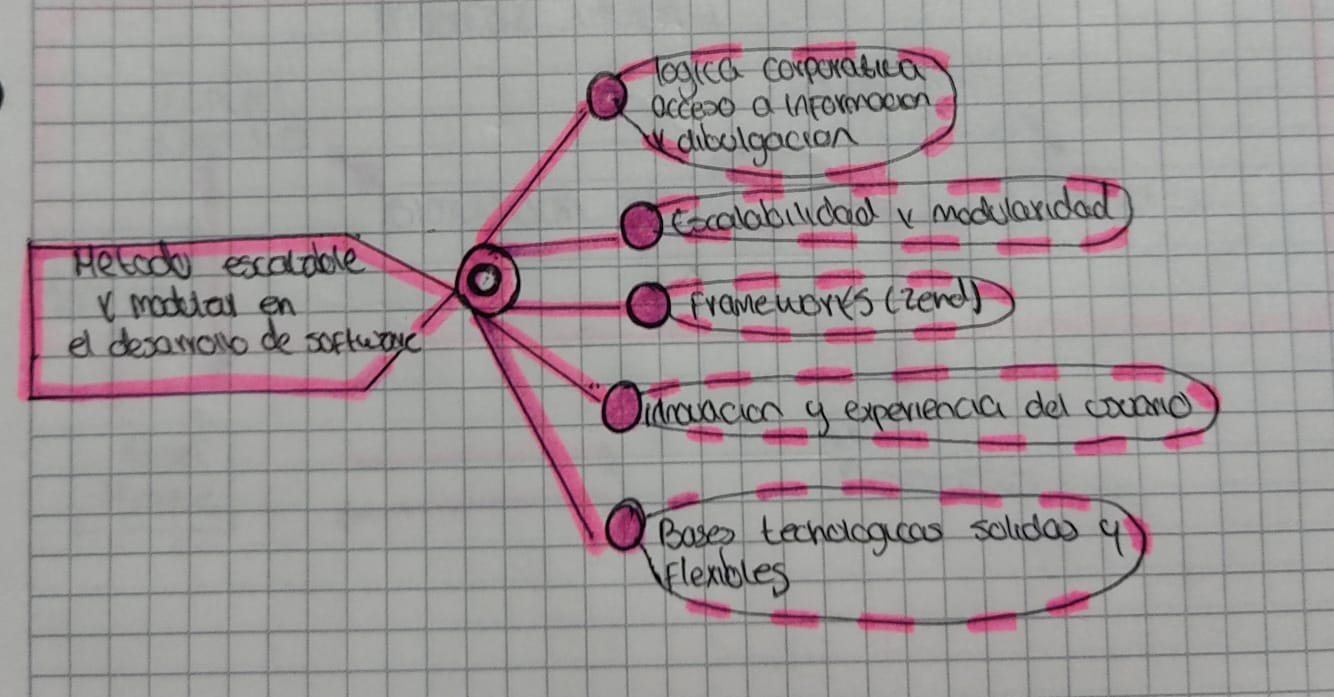 Metodo escalable
y modular en
el desarrollo de software
logica corporativa
acceso a informacion
y dibulgacion
Escalabilidad y modularidad
Frameworks (zend)
innovacion y experiencia del usuario
Bases tecnologicas solidas y
flexibles